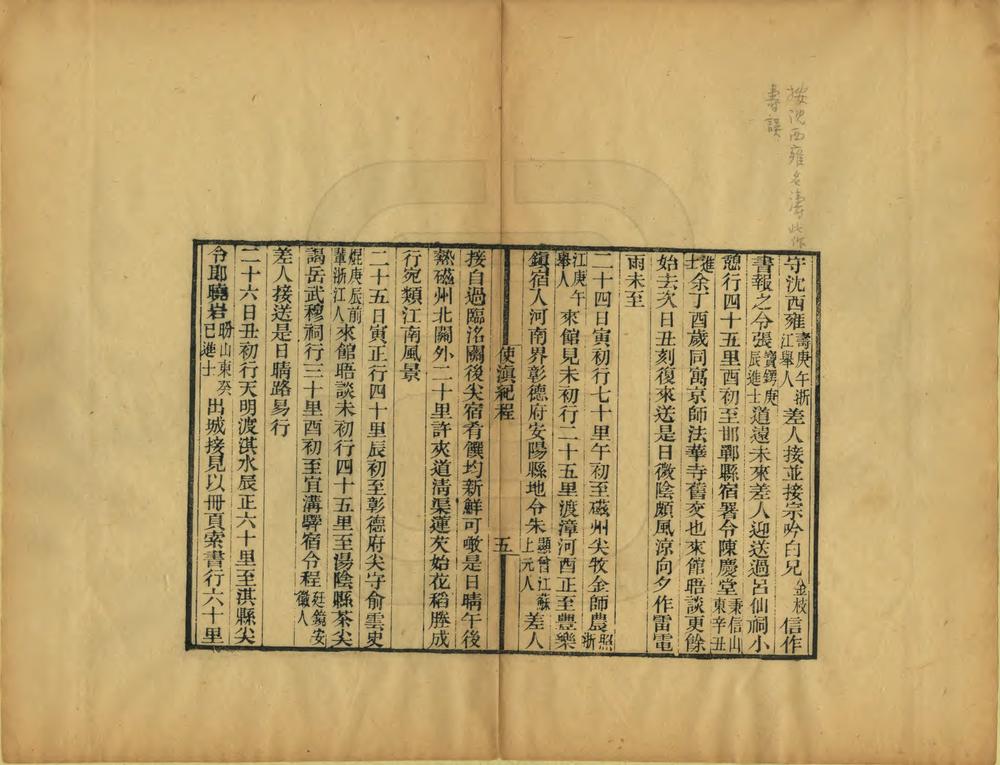 按沈西雍名濤此作
壽誤
守沈西雍壽庚午浙江舉人差人接並接宗吟白兄金枝信作
書報之令張寶鍔庚辰進士道遠未來差人迎送過呂仙祠小
憩行四十五里酉初至邯鄲縣宿署令陳慶堂秉信山東辛丑
進士余丁酉歲同寓京師法華寺舊交也來館晤談更餘
始去次日丑刻復來送是日微陰頗風涼向夕作雷電
雨未至
二十四日寅初行七十里午初至磁州尖牧金師農照浙
江庚午舉人來館見未初行二十五里渡漳河酉正至豐樂
鎮宿入河南界彰德府安陽縣地令朱顯曾江蘇上元人差人
使滇紀程
五
接自過臨洺關後尖宿肴饌均新鮮可噉是日晴午後
熱磁州北關外二十里許夾道清渠蓮芡始花稻塍成
行宛類江南風景
二十五日寅正行四十里辰初至彰德府尖守俞雲史
焜庚辰前輩浙江人來館晤談未初行四十五里至湯陰縣茶尖
謁岳武穆祠行三十里酉初至宜溝驛宿令程廷鏡安徽人
差人接送是日晴路易行
二十六日丑初行天明渡淇水辰正六十里至淇縣尖
令耶曉岩昐山東癸巳進士出城接見以冊頁索書行六十里